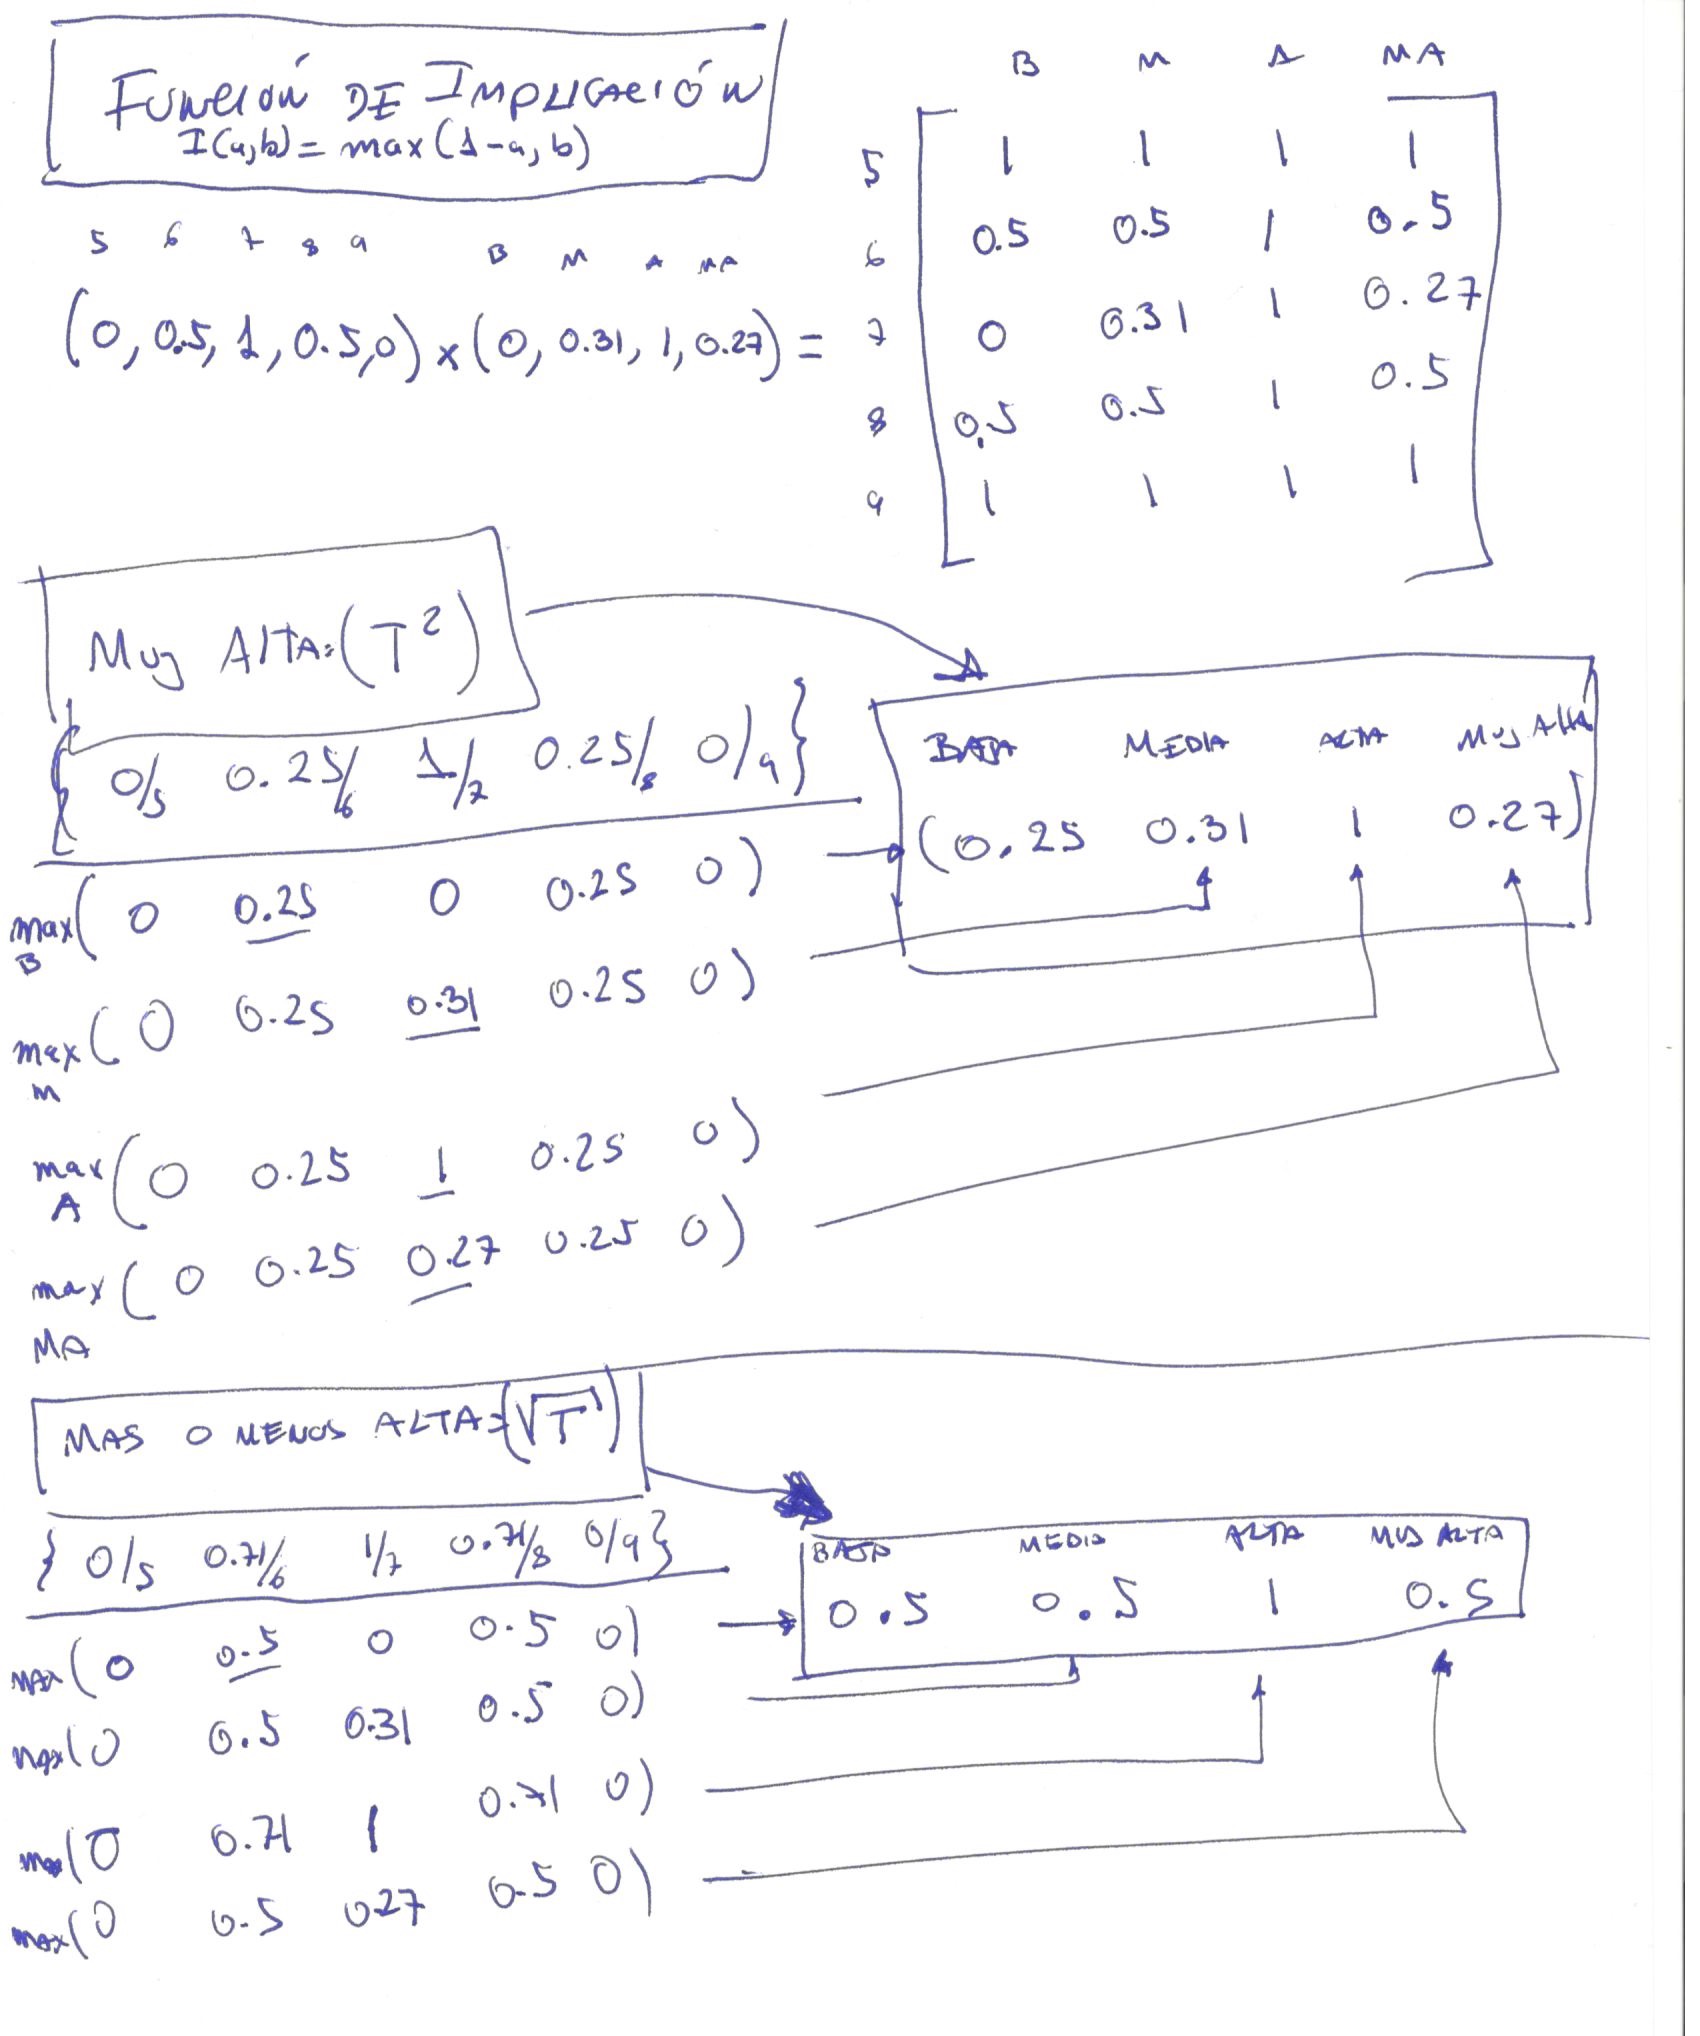 FUNCIÓN DE IMPLICACIÓN
I(a,b) = max(1-a, b)
5 6 7 8 9 B M A MA
(0, 0.5, 1, 0.5, 0) x (0, 0.31, 1, 0.27) =
B M A MA
5 1 1 1 1
6 0.5 0.5 1 0.5
7 0 0.31 1 0.27
8 0.5 0.5 1 0.5
9 1 1 1 1
Muy ALTA: (T²)
{0/5 0.25/6 1/7 0.25/8 0/9}
max B (0 0.25 0 0.25 0)
max M (0 0.25 0.31 0.25 0)
max A (0 0.25 1 0.25 0)
max MA (0 0.25 0.27 0.25 0)
BAJA MEDIA ALTA Muy Alta
(0.25 0.31 1 0.27)
MAS O MENOS ALTA = (√T)
{0/5 0.71/6 1/7 0.71/8 0/9}
max(0 0.5 0 0.5 0)
max(0 0.5 0.31 0.5 0)
max(0 0.71 1 0.71 0)
max(0 0.5 0.27 0.5 0)
BAJA MEDIA ALTA MUY ALTA
0.5 0.5 1 0.5